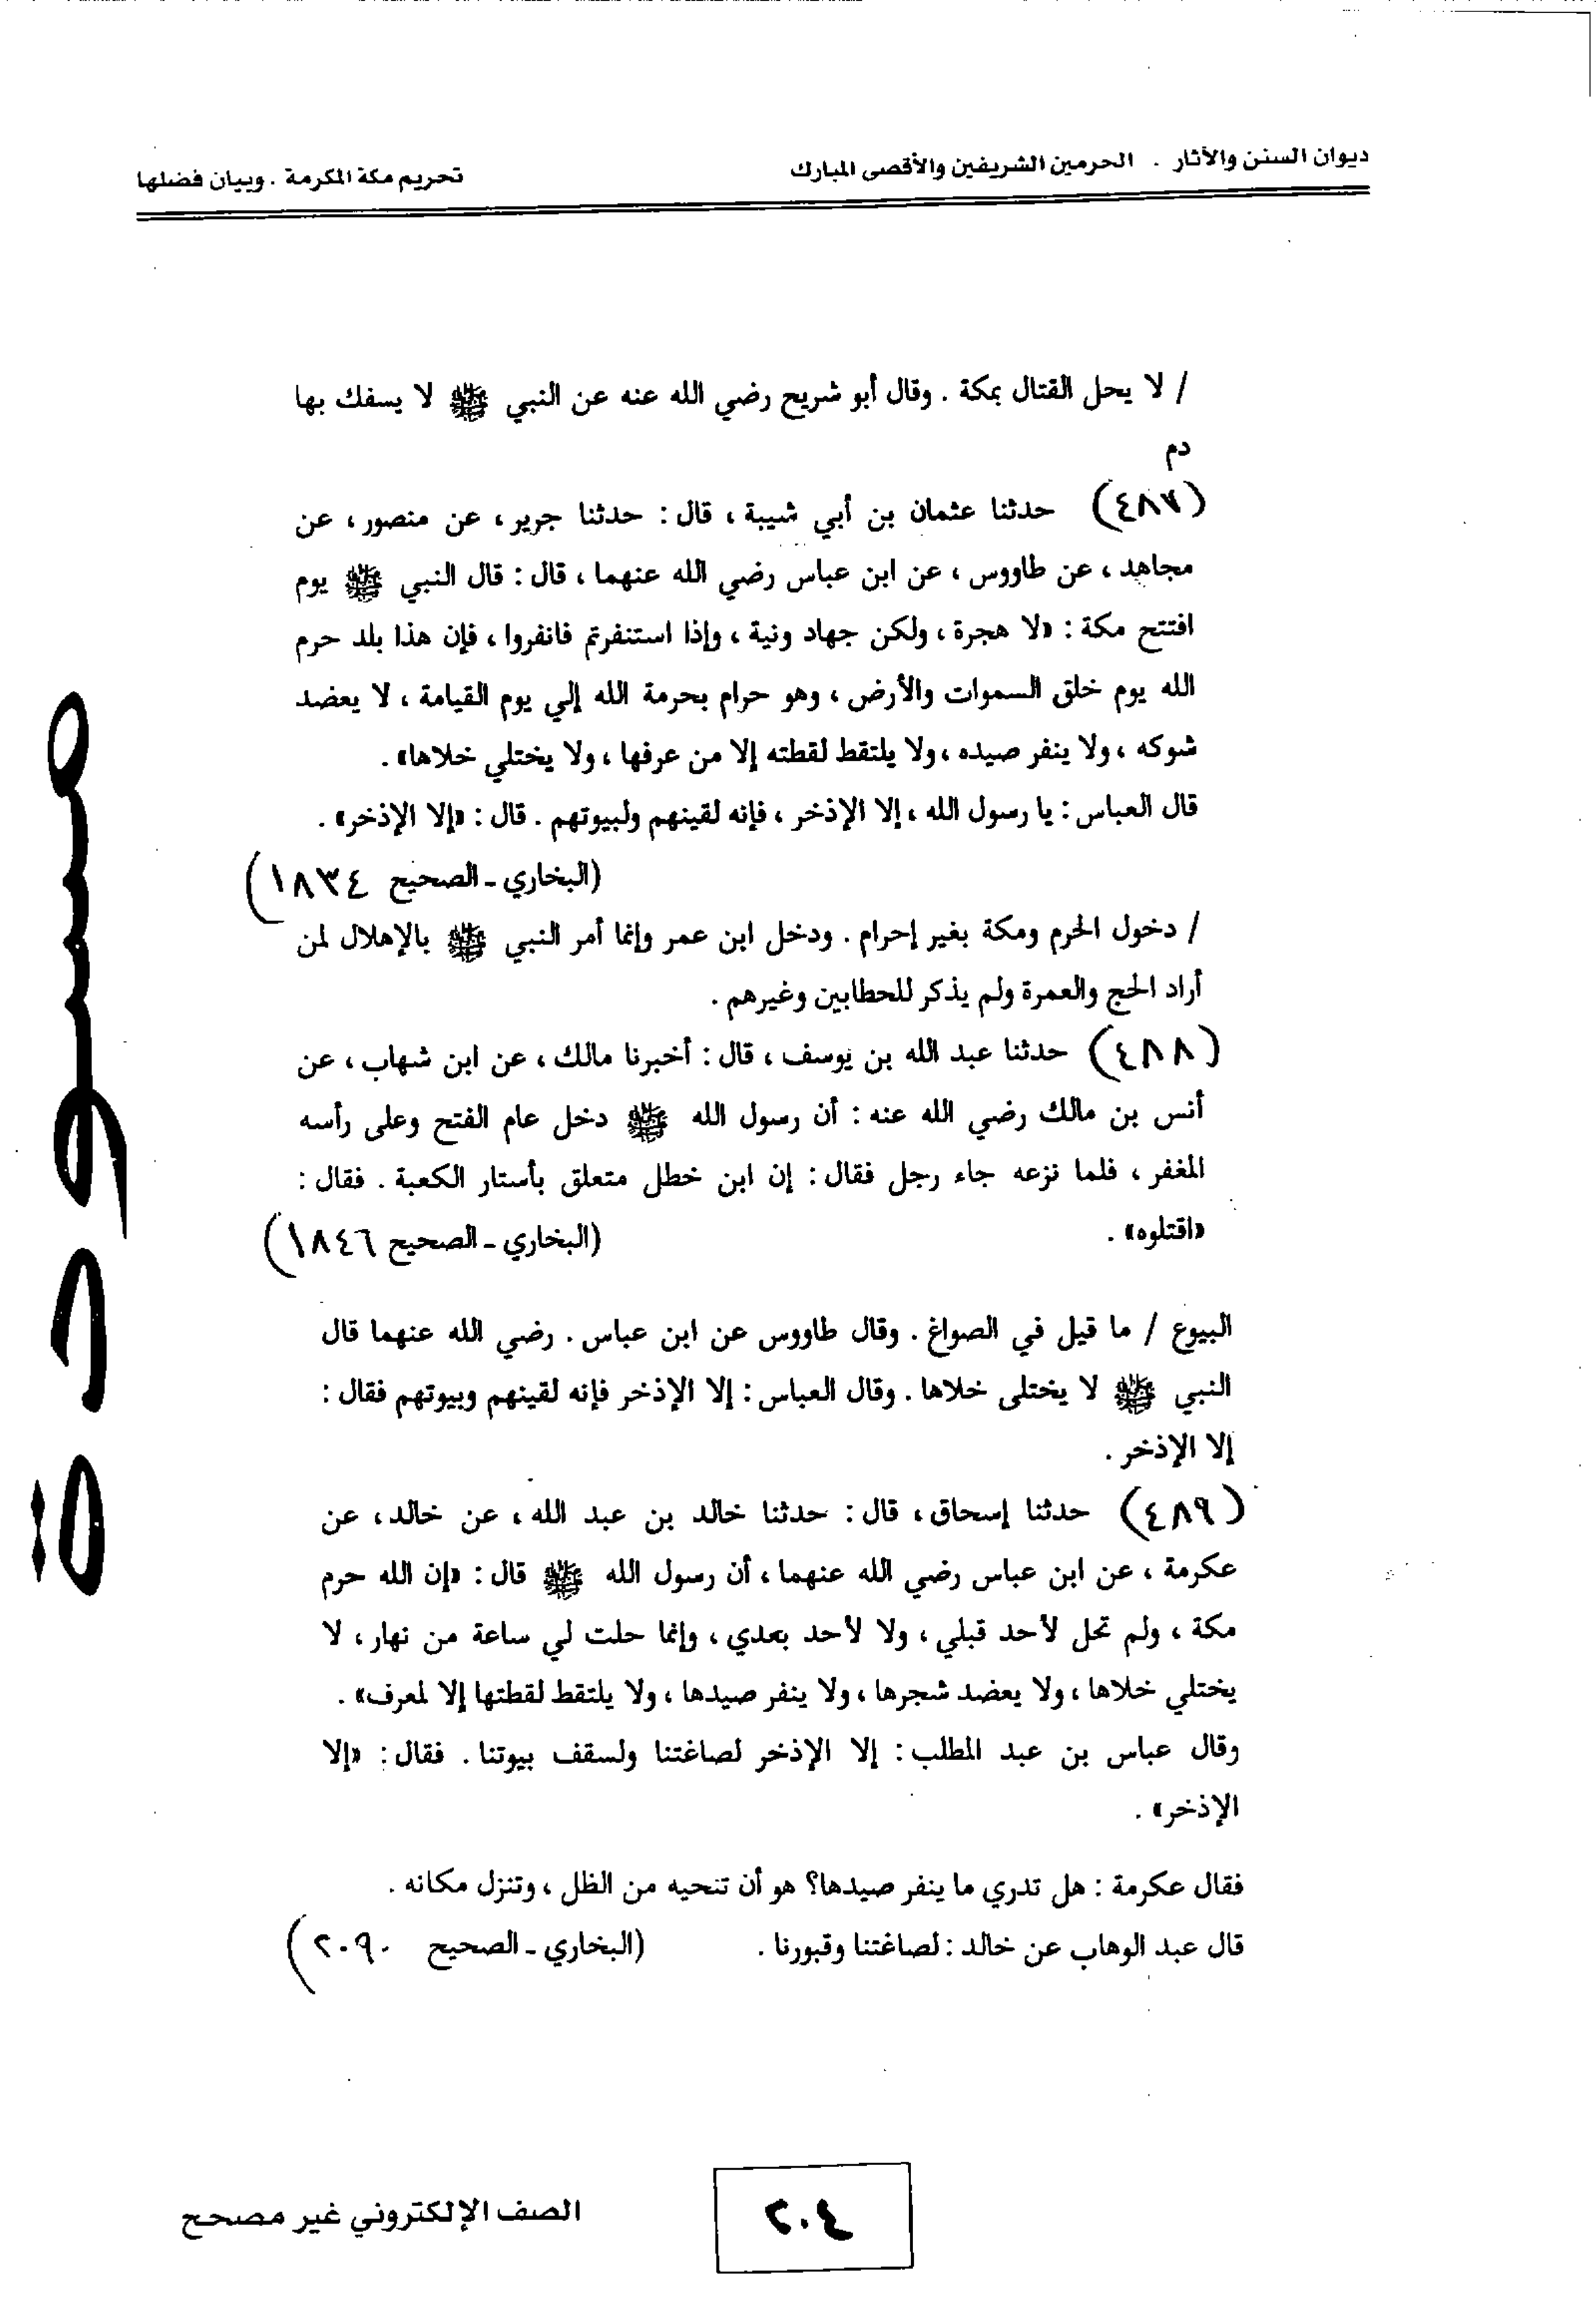 ديوان السنن والآثار . الحرمين الشريفين والأقصى المبارك
تحريم مكة المكرمة . وبيان فضلها
/ لا يحل القتال بمكة . وقال أبو شريح رضي الله عنه عن النبي ﷺ لا يسفك بها
دم
(٤٨٧) حدثنا عثمان بن أبي شيبة ، قال : حدثنا جرير ، عن منصور ، عن
مجاهد ، عن طاووس ، عن ابن عباس رضي الله عنهما ، قال : قال النبي ﷺ يوم
افتتح مكة : «لا هجرة ، ولكن جهاد ونية ، وإذا استنفرتم فانفروا ، فإن هذا بلد حرم
الله يوم خلق السموات والأرض ، وهو حرام بحرمة الله إلي يوم القيامة ، لا يعضد
شوكه ، ولا ينفر صيده ، ولا يلتقط لقطته إلا من عرفها ، ولا يختلي خلاها» .
قال العباس : يا رسول الله ، إلا الإذخر ، فإنه لقينهم ولبيوتهم . قال : «إلا الإذخر» .
(البخاري - الصحيح ١٨٣٤)
/ دخول الحرم ومكة بغير إحرام . ودخل ابن عمر وإنما أمر النبي ﷺ بالإهلال لمن
أراد الحج والعمرة ولم يذكر للحطابين وغيرهم .
(٤٨٨) حدثنا عبد الله بن يوسف ، قال : أخبرنا مالك ، عن ابن شهاب ، عن
أنس بن مالك رضي الله عنه : أن رسول الله ﷺ دخل عام الفتح وعلى رأسه
المغفر ، فلما نزعه جاء رجل فقال : إن ابن خطل متعلق بأستار الكعبة . فقال :
«اقتلوه» . (البخاري - الصحيح ١٨٤٦)
البيوع / ما قيل في الصواغ . وقال طاووس عن ابن عباس . رضي الله عنهما قال
النبي ﷺ لا يختلى خلاها . وقال العباس : إلا الإذخر فإنه لقينهم وبيوتهم فقال :
إلا الإذخر .
(٤٨٩) حدثنا إسحاق ، قال : حدثنا خالد بن عبد الله ، عن خالد ، عن
عكرمة ، عن ابن عباس رضي الله عنهما ، أن رسول الله ﷺ قال : «إن الله حرم
مكة ، ولم تحل لأحد قبلي ، ولا لأحد بعدي ، وإنما حلت لي ساعة من نهار ، لا
يختلي خلاها ، ولا يعضد شجرها ، ولا ينفر صيدها ، ولا يلتقط لقطتها إلا لمعرف» .
وقال عباس بن عبد المطلب : إلا الإذخر لصاغتنا ولسقف بيوتنا . فقال : «إلا
الإذخر» .
فقال عكرمة : هل تدري ما ينفر صيدها؟ هو أن تنحيه من الظل ، وتنزل مكانه .
قال عبد الوهاب عن خالد : لصاغتنا وقبورنا . (البخاري - الصحيح ٢٠٩٠)
مسودة
٢٠٤
الصف الإلكتروني غير مصحح